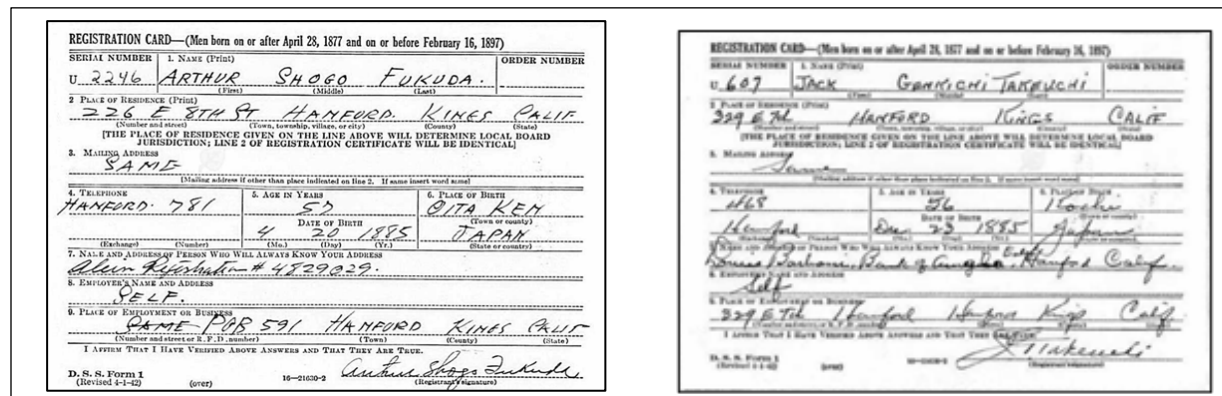 REGISTRATION CARD—(Men born on or after April 28, 1877 and on or before February 16, 1897)
SERIAL NUMBER 1. NAME (Print) ORDER NUMBER
U 2246 ARTHUR SHOGO FUKUDA.
(First) (Middle) (Last)
2 PLACE OF RESIDENCE (Print)
226 E 8TH ST HANFORD. KINGS CALIF
(Number and street) (Town, township, village, or city) (County) (State)
[THE PLACE OF RESIDENCE GIVEN ON THE LINE ABOVE WILL DETERMINE LOCAL BOARD
JURISDICTION; LINE 2 OF REGISTRATION CERTIFICATE WILL BE IDENTICAL]
3. MAILING ADDRESS
SAME
[Mailing address if other than place indicated on line 2. If same insert word same]
4. TELEPHONE 5. AGE IN YEARS 6. PLACE OF BIRTH
HANFORD. 781 57 OITA KEN
DATE OF BIRTH (Town or county)
4 20 1885 JAPAN
(Exchange) (Number) (Mo.) (Day) (Yr.) (State or country)
7. NAME AND ADDRESS OF PERSON WHO WILL ALWAYS KNOW YOUR ADDRESS
Alien Registration # 4829029.
8. EMPLOYER'S NAME AND ADDRESS
SELF.
9. PLACE OF EMPLOYMENT OR BUSINESS
SAME POB 591 HANFORD KINGS CALIF
(Number and street or R. F. D. number) (Town) (County) (State)
I AFFIRM THAT I HAVE VERIFIED ABOVE ANSWERS AND THAT THEY ARE TRUE.
D. S. S. Form 1
(Revised 4-1-42) (over) 16—21630-2 Arthur Shogo Fukuda
(Registrant's signature)
REGISTRATION CARD—(Men born on or after April 28, 1877 and on or before February 16, 1897)
SERIAL NUMBER 1. NAME (Print) ORDER NUMBER
U 607 JACK GENKICHI TAKEUCHI
2 PLACE OF RESIDENCE (Print)
329 E 7th HANFORD KINGS CALIF
(Number and street) (Town, township, village, or city) (County) (State)
[THE PLACE OF RESIDENCE GIVEN ON THE LINE ABOVE WILL DETERMINE LOCAL BOARD
JURISDICTION; LINE 2 OF REGISTRATION CERTIFICATE WILL BE IDENTICAL]
3. MAILING ADDRESS
Same
[Mailing address if other than place indicated on line 2. If same insert word same]
4. TELEPHONE 5. AGE IN YEARS 6. PLACE OF BIRTH
468 56 Kochi
DATE OF BIRTH
Hanford Dec 23 1885 Japan
7. NAME AND ADDRESS OF PERSON WHO WILL ALWAYS KNOW YOUR ADDRESS
Bank of Hanford Calif.
8. EMPLOYER'S NAME AND ADDRESS
Self
9. PLACE OF EMPLOYMENT OR BUSINESS
329 E 7th Hanford Hanford Kings Calif
I AFFIRM THAT I HAVE VERIFIED ABOVE ANSWERS AND THAT THEY ARE TRUE.
J Takeuchi
D. S. S. Form 1
(Revised 4-1-42) (over) (Registrant's signature)